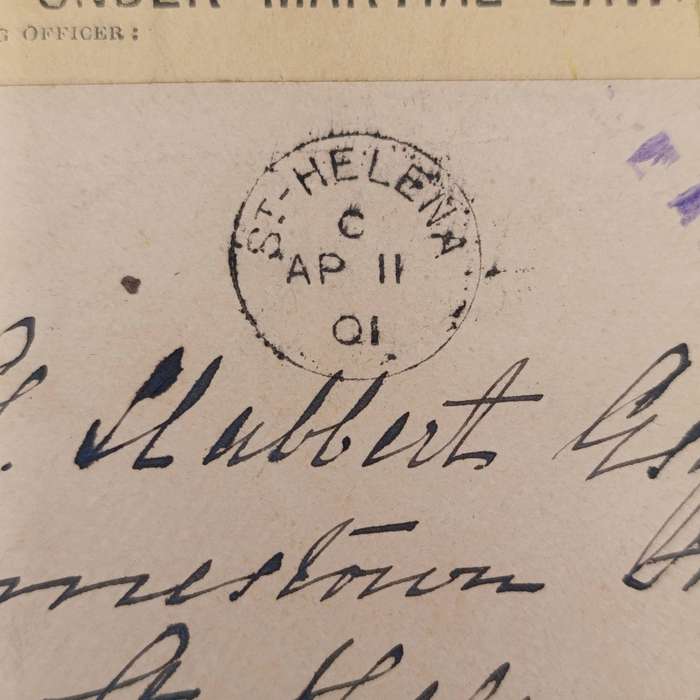 UNDER MARTIAL LAW
G OFFICER:
ST-HELENA
C
AP 11
01
Stabbert Es
mestown
St. Hel